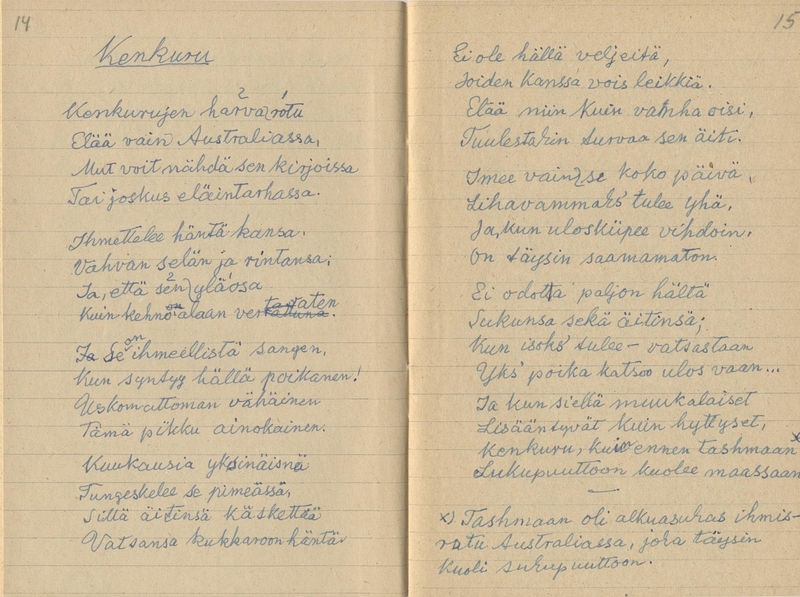 14
Kenkuru
Kenkurujen harva 2 rotu
Elää vain Australiassa,
Mut voit nähdä sen kirjoissa
Tai joskus eläintarhassa.
Ihmettelee häntä kansa.
Vahvan selän ja rintansa;
Ja, että sen 2 yläosa
Kuin kehno on alaan verraten
Ja se on ihmeellistä sangen,
Kun syntyy hällä poikanen!
Uskomattoman vähäinen
Tämä pikku ainokainen.
Kuukausia yksinäisnä
Tungeskelee se pimeässä,
Sillä äitinsä käskettää
Vatsansa kukkaroon häntä.
15
Ei ole hällä veljeitä,
Joiden kanssa vois leikkiä.
Elää niin kuin vanha oisi,
Tuulestakin turvaa sen äiti.
Imee vain se koko päivä,
Lihavammaks' tulee yhä,
Ja, kun ulosküpee vihdoin,
On täysin saamamaton.
Ei odotta paljon hältä
Sukunsa sekä äitinsä;
Kun isoks' tulee – vatsastaan
Yks' poika katsoo ulos vaan...
Ja kun sieltä muukalaiset
Lisääntyvät kuin hyttyset,
Kenkuru, kuin ennen tashmaan x
Sukupuuttoon kuolee maassaan
x) Tashmaan oli alkuasukas ihmis-
ratu Australiassa, joka täysin
kuoli sukupuuttoon.